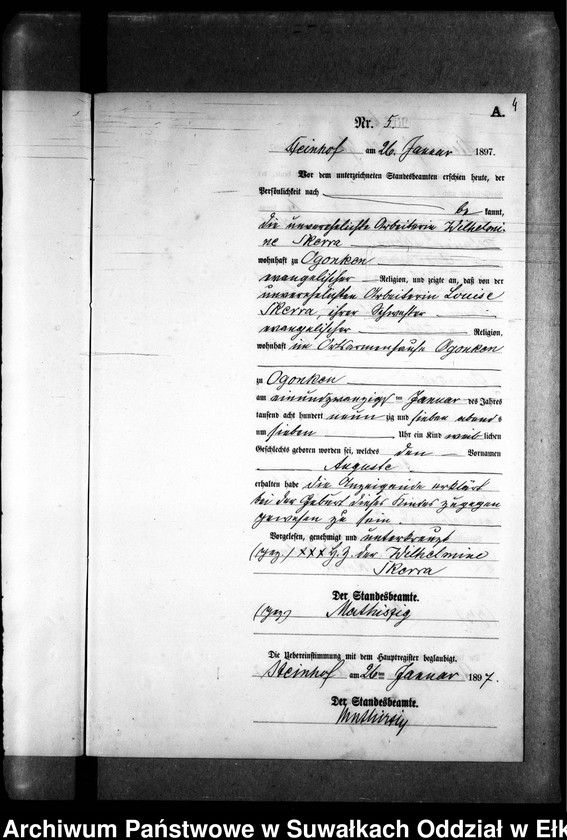 4
A.
Nr. 5.
Steinhof am 26. Januar 1897.
Vor dem unterzeichneten Standesbeamten erschien heute, der
Persönlichkeit nach
be kannt,
die unverehelichte Arbeiterin Wilhelmi-
ne Skerra
wohnhaft zu Ogonken
evangelischer Religion, und zeigte an, daß von der
unverehelichten Arbeiterin Louise
Skerra, ihrer Schwester
evangelischer Religion,
wohnhaft im Ortsarmenhause Ogonken
zu Ogonken
am einundzwanzigsten Januar des Jahres
tausend acht hundert neun zig und sieben abends
um sieben Uhr ein Kind weib lichen
Geschlechts geboren worden sei, welches den Vornamen
Auguste
erhalten habe die Anzeigende erklärt
bei der Geburt dieses Kindes zugegen
gewesen zu sein.
Vorgelesen, genehmigt und unterkreuzt
(gez.) XXX H.Z. der Wilhelmine
Skerra
Der Standesbeamte.
(gez) Mathiszig
Die Uebereinstimmung mit dem Hauptregister beglaubigt.
Steinhof am 26ten Januar 1897.
Der Standesbeamte.
Mathiszig
Archiwum Państwowe w Suwałkach Oddział w Ełk